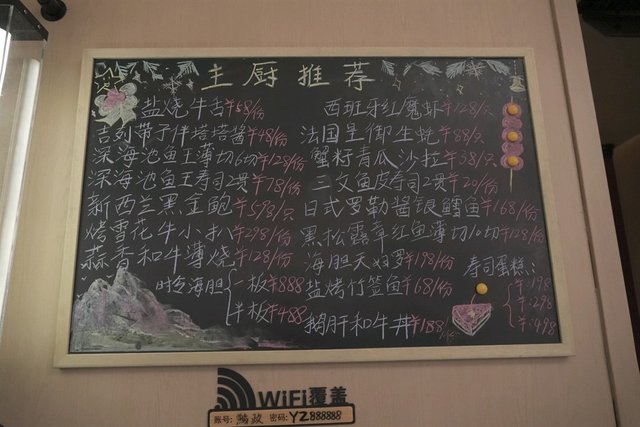 主厨推荐
盐烧牛舌¥68/份
吉列带子伴塔塔酱¥48/份
深海池鱼王薄切6切¥128/份
深海池鱼王寿司2贯¥78/份
新西兰黑金鲍¥598/只
烤雪花牛小扒¥298/份
蒜香和牛薄烧¥128/份
时令海胆
一板¥888
半板¥488
西班牙红魔虾¥128/只
法国皇御生蚝¥88/只
蟹籽青瓜沙拉¥38/只
三文鱼皮寿司2贯¥20/份
日式罗勒酱银鳕鱼¥168/份
黑松露章红鱼薄切10切¥128/份
海胆天妇罗¥198/份
盐烤竹签鱼¥68/份
鹅肝和牛丼¥188/份
寿司蛋糕:
¥198
¥298
¥498
WiFi覆盖
账号: 密码: YZ888888